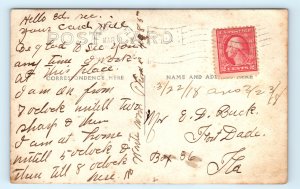 Hello ed. rec.
your card will
be glad to see you
any time I work
at this place.
I am on from
7 oclock untill two
sharp & then
I am at home
untill 5 oclock &
then till 8 oclock
here R
POST CARD
CORRESPONDENCE HERE
NAME AND ADDRESS HERE
3/22/18 ans 2/23/18
Mr E. D. Buck.
Fort Dade.
Box 36
Fla